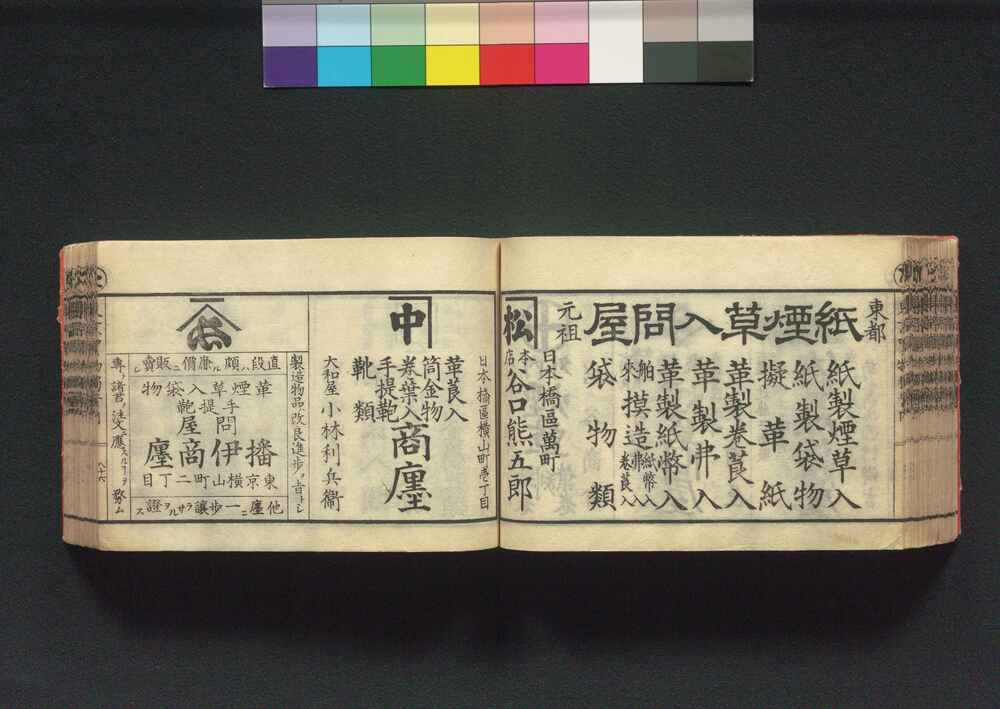 東都
紙煙草入問屋
元祖
紙製煙草入
紙製袋物
擬革紙
革製巻莨入
革製弗入
革製紙幣入
舶来摸造
紙幣入
弗入
巻莨入
袋物類
日本橋區萬町
松本店
谷口熊五郎
日本橋區横山町壱丁目
中
革莨入
筒金物
巻葉入
手提鞄
靴類
商廛
大和屋 小林利兵衞
製造物品ノ改良進歩ヲ旨トシ
直段ハ頗ル廉價ニ販賣シ
革煙草入袋物
手提鞄
問屋
播伊商廛
東京横山町二丁目
他廛ニ一歩讓ラサルヲ證ス
八十六